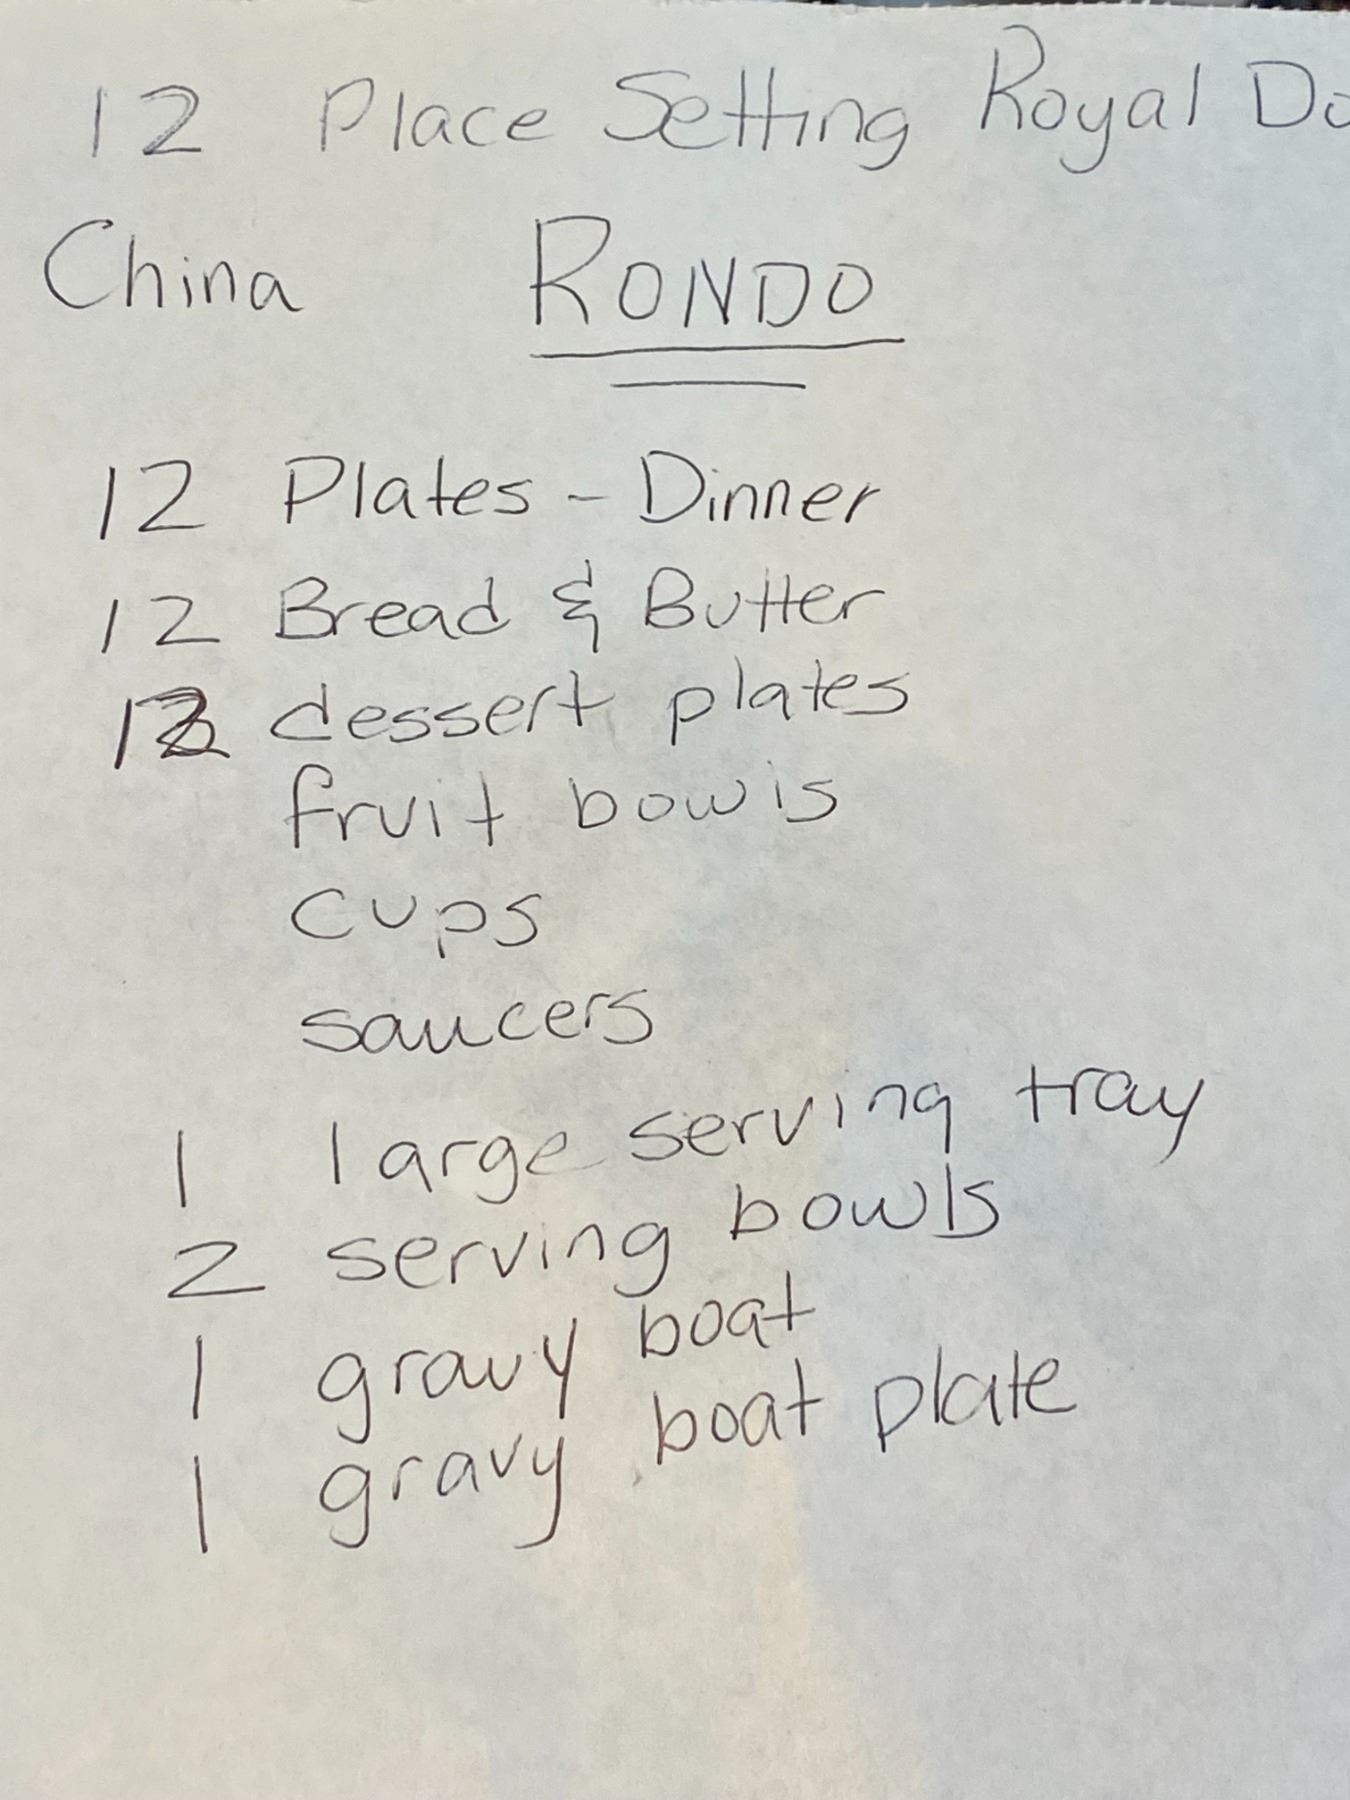 12 Place Setting Royal Do
China RONDO
12 Plates - Dinner
12 Bread & Butter
12 dessert plates
fruit bowls
cups
saucers
1 large serving tray
2 serving bowls
1 gravy boat
1 gravy boat plate